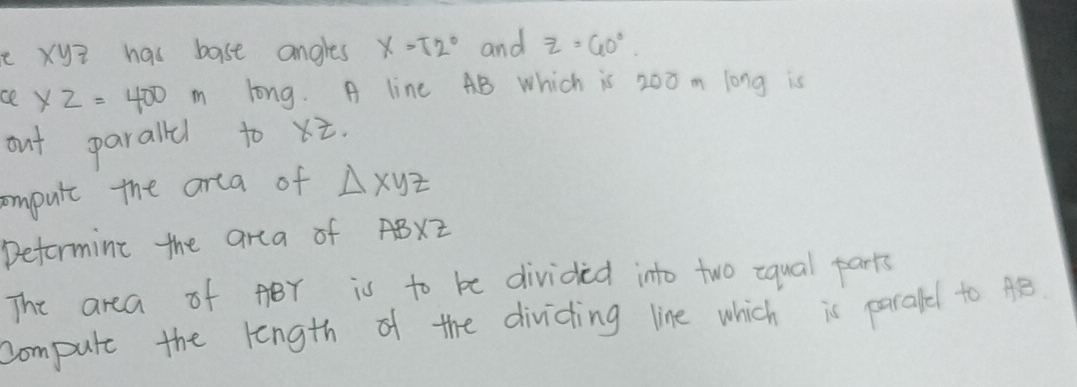 e XYZ has base angles X = 52° and Z = 60°.
ce XZ = 400 m long. A line AB which is 200 m long is
out parallel to XZ.
ompute the area of ΔXYZ
Determine the area of ABXZ
The area of ABY is to be divided into two equal parts
Compute the length of the dividing line which is parallel to AB.